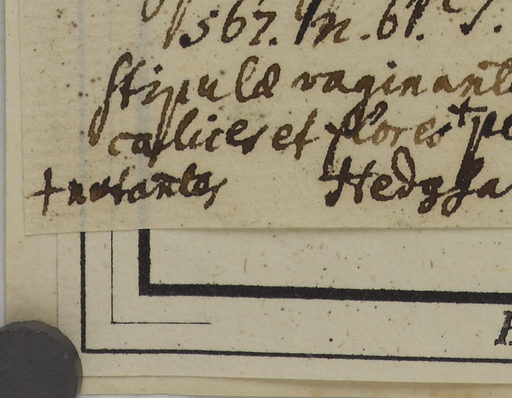 567. n. 61.
stipulæ vaginant
calices et flores + pe
+ nutantes Hedgsa